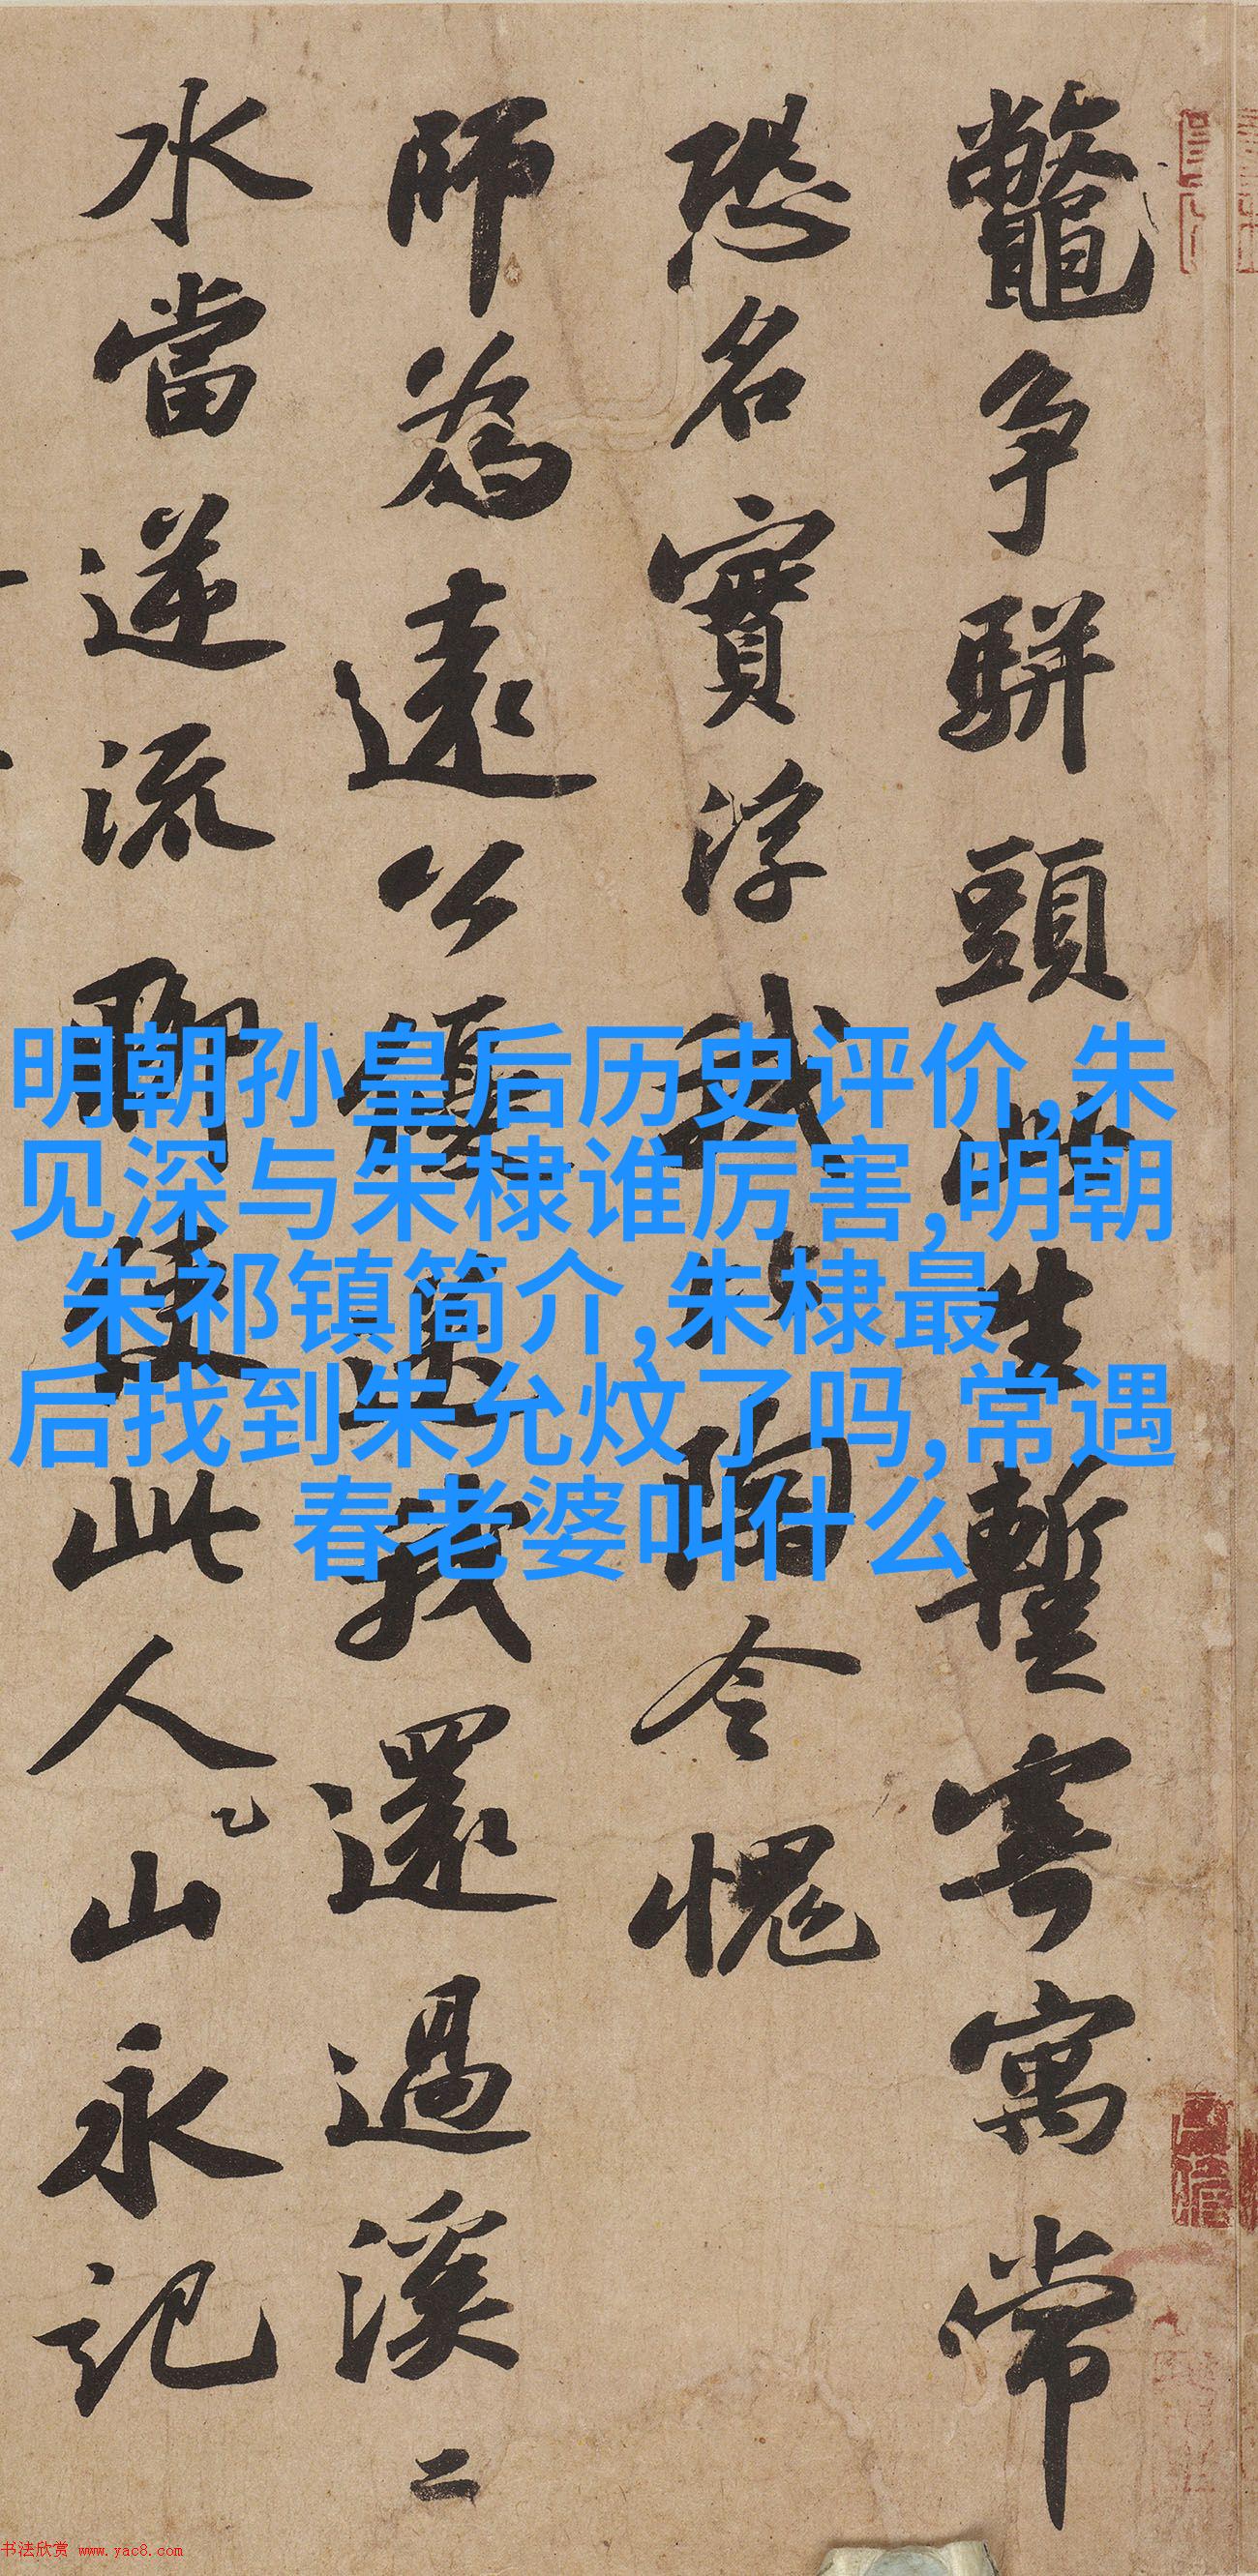 鼈争駢頭此生暫寄寓常
恐名實浮我比陶令愧
師為遠公優送我還過溪
水當逆流聊使此人山永記
二
明朝孙皇后历史评价,朱
见深与朱棣谁厉害,明朝
朱祁镇简介,朱棣最
后找到朱允炆了吗,常遇
春老婆叫什么
书法欣赏 www.yac8.com